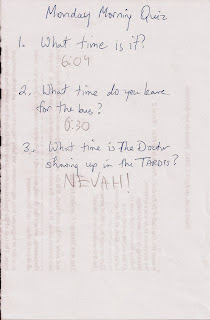 Monday Morning Quiz
1. What time is it?
6:09
2. What time do you leave
for the bus?
6:30
3. What time is The Doctor
showing up in the TARDIS?
NEVAH!